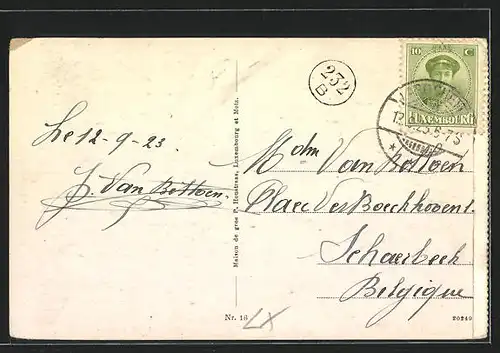 Le 12-9-23
J. Van Bottoen.
Maison de gros P. Houstraas, Luxembourg et Metz.
232
B.
10 C
LUXEMBOURG
12.
6-7S
Mdm Van Bottoen
Place Ver Boeckhovent
Schaerbeek
Belgique
Nr. 16
LX
20249